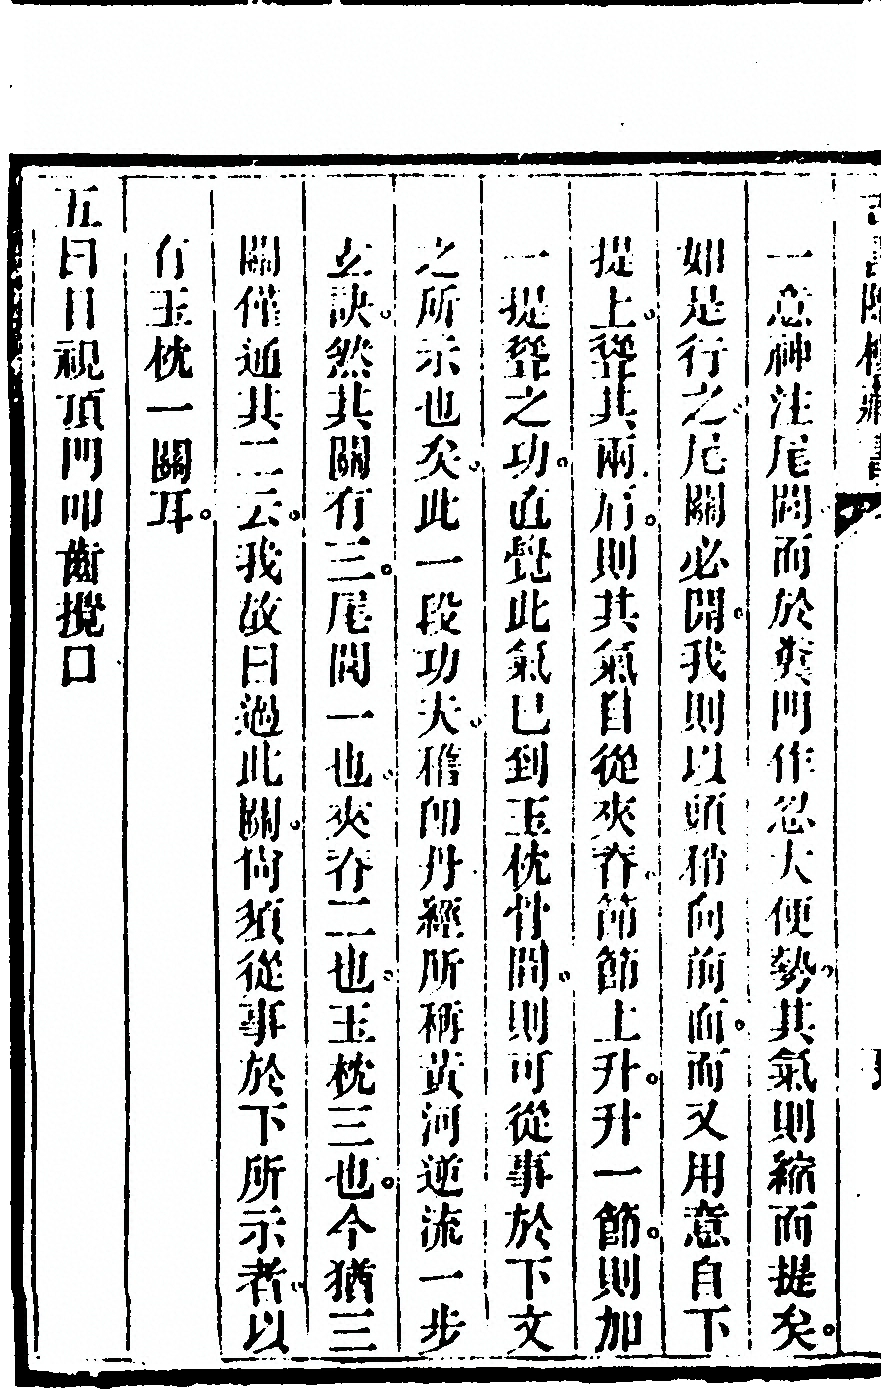 一意神注尾閭而於糞門作忍大便勢。其氣則縮而提矣。
如是行之。尾關必開。我則以頭稍向前面。而又用意自下
提上。聳其兩肩。則其氣自從夾脊。節節上升。升一節。則加
一提聳之功。直覺此氣已到玉枕骨間。則可從事於下文
之所示也矣。此一段功夫。稽卽丹經所稱黃河逆流一步
玄訣。然其關有三。尾閭一也。夾脊二也。玉枕三也。今猶三
關僅通其二云。我故曰過此關。尚須從事於下所示者。以
有玉枕一關耳。
五曰目視頂門叩齒攪口